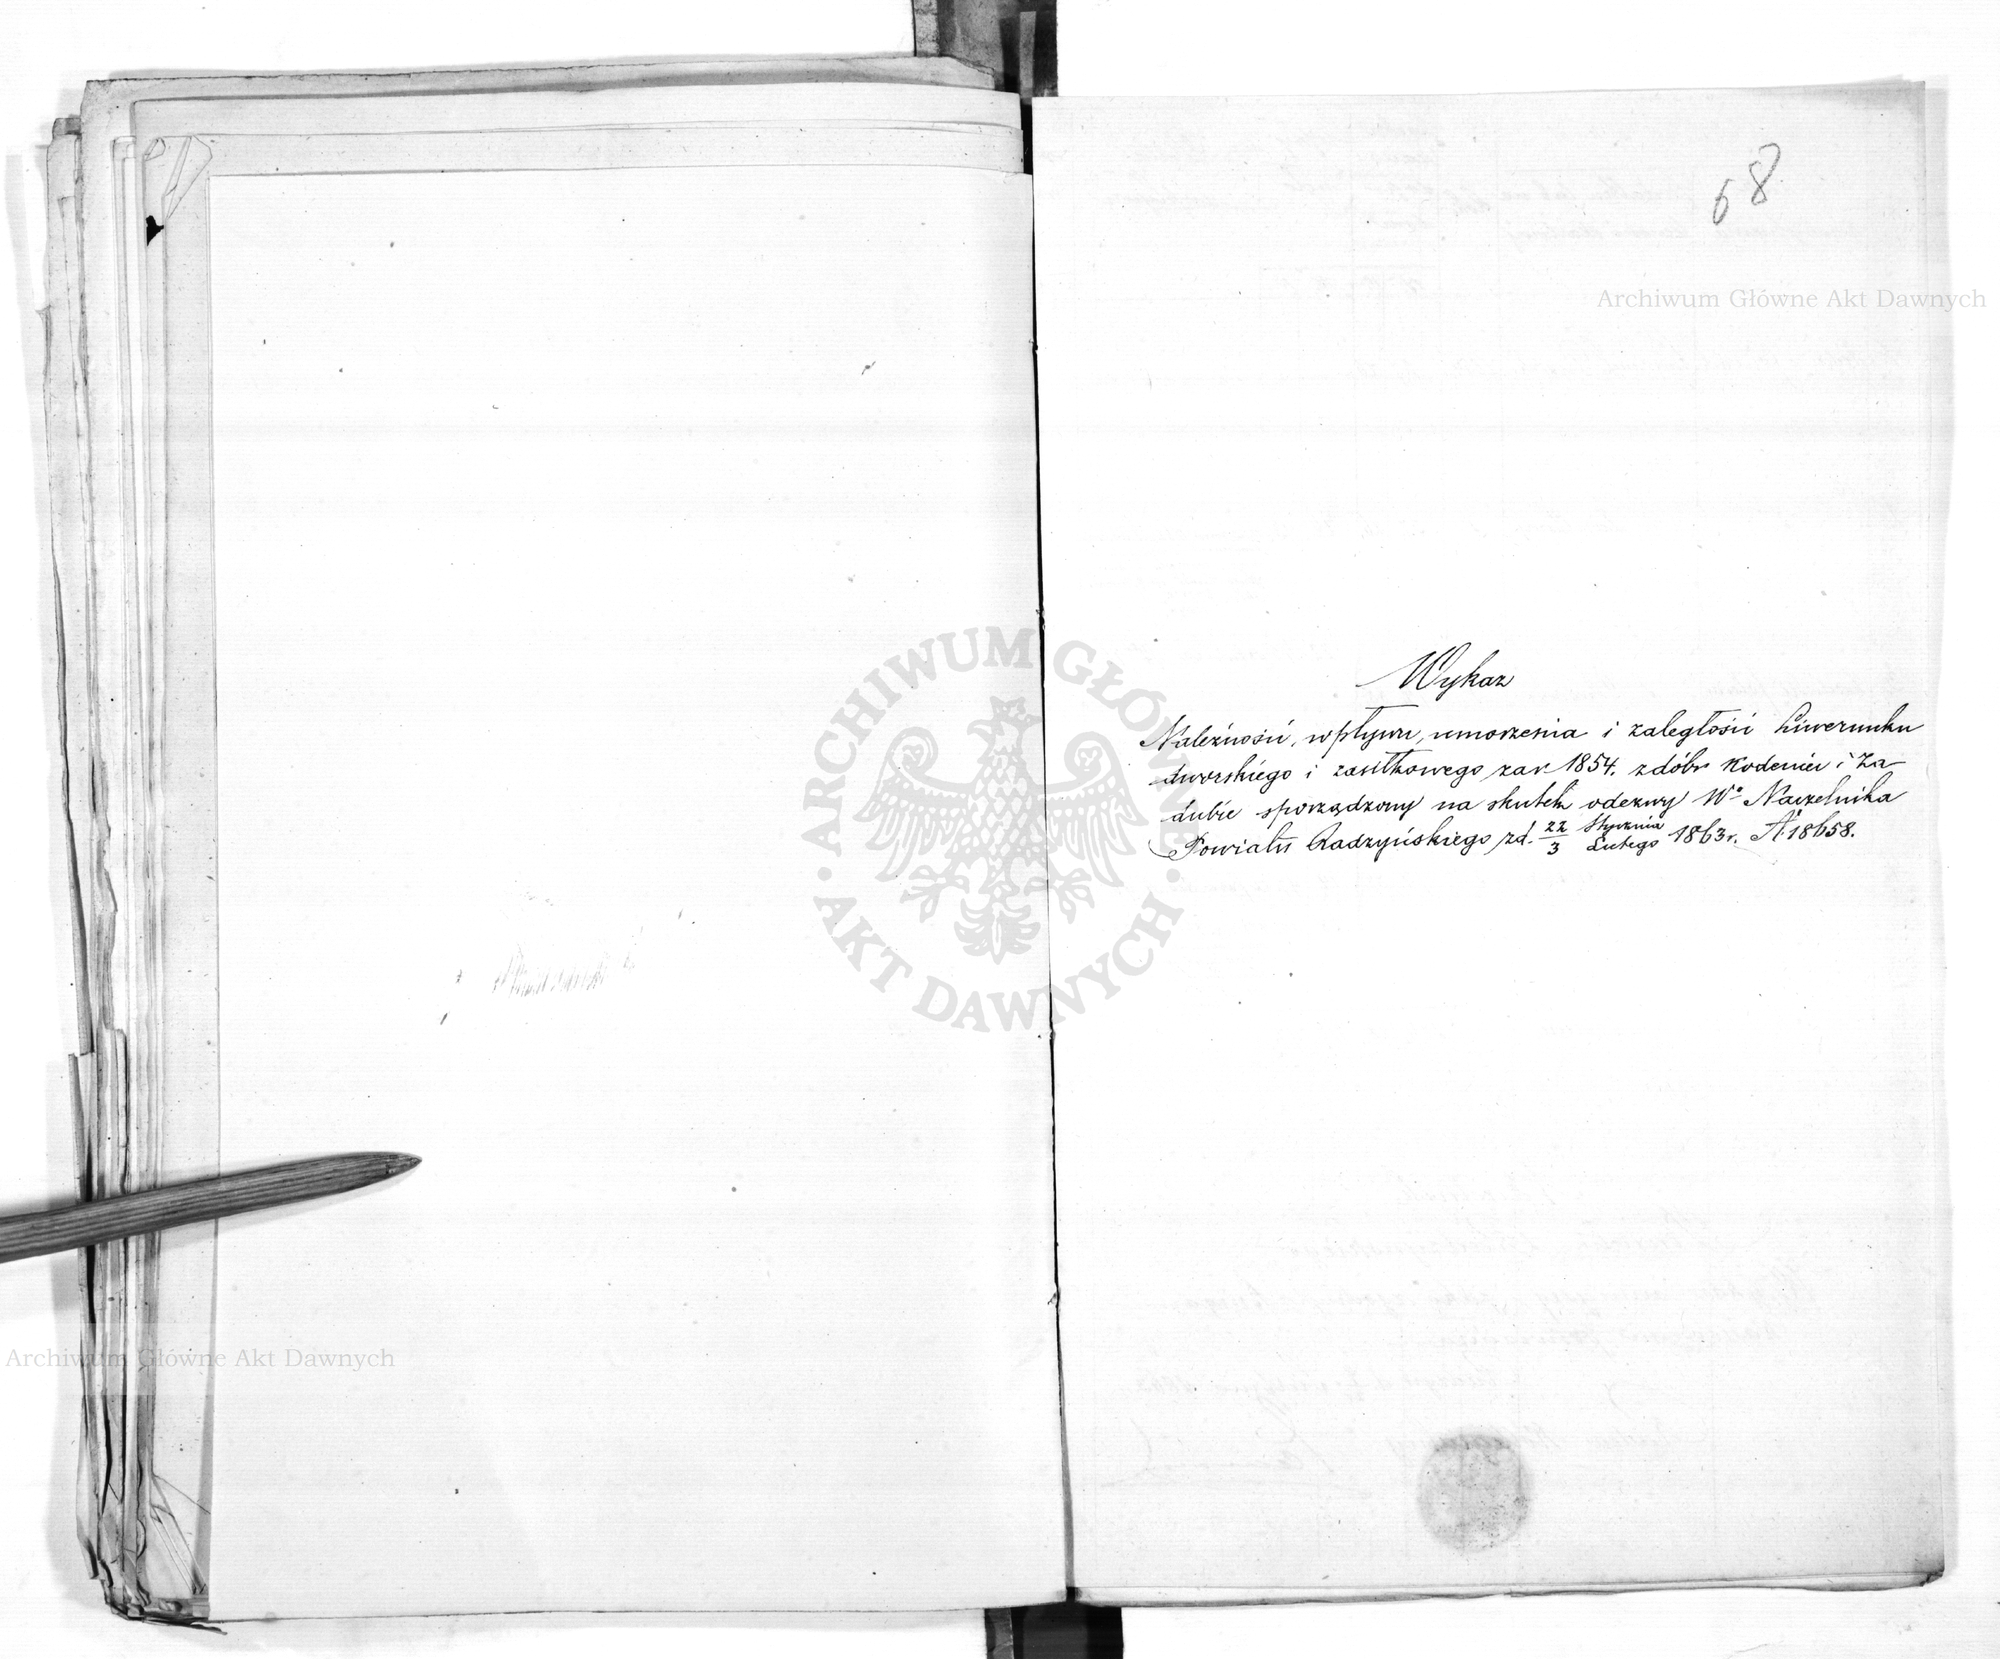 68
Archiwum Główne Akt Dawnych
Wykaz
Należności, wpływu, umorzenia i zaległości Liwerunku
dworskiego i zasiłkowego za r 1854. z dóbr Kodeniec i Za
dubie sporządzony na skutek odezwy Wº Naczelnika
Powiatu Radzyńskiego z d. 22/3 Stycznia/Lutego 1863 r. № 18658.
ARCHIWUM GŁÓWNE
AKT DAWNYCH
Archiwum Główne Akt Dawnych